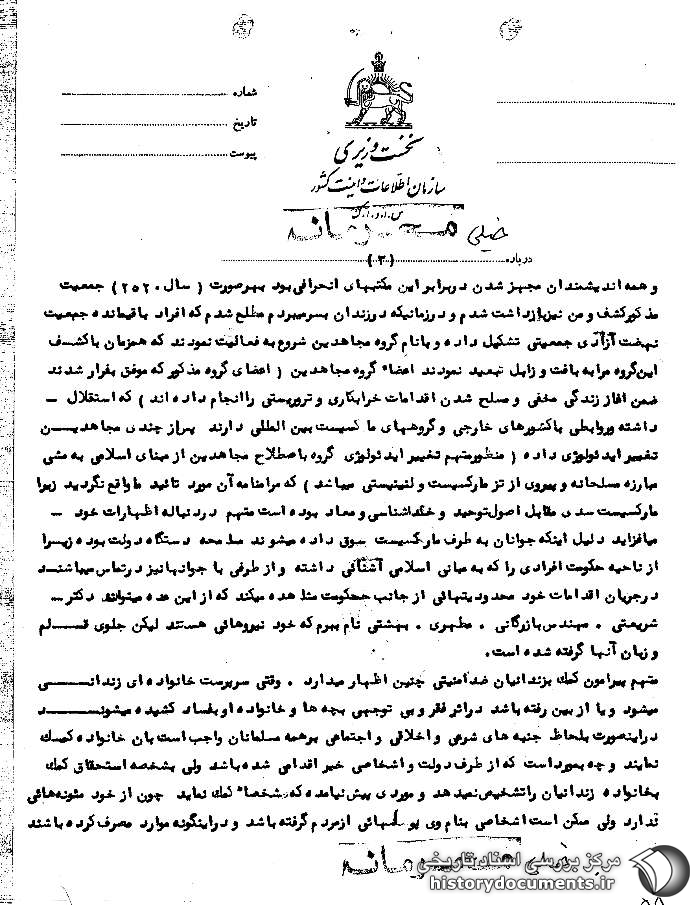 شماره
تاریخ
پیوست
نخست وزیری
سازمان اطلاعات و امنیت کشور
س.ا.و.ا.ک
خیلی محرمانه
درباره (۳)
و همه اندیشمندان مجهز شدن در برابر این مکتبهای انحرافی بود بهرصورت ( سال ۲۵۲۰ ) جمعیت
مذکور کشف و من نیز بازداشت شدم و در زمانیکه در زندان بسر میبردم مطلع شدم که افراد باقیمانده جمعیت
نهضت آزادی جمعیتی تشکیل داده و با نام گروه مجاهدین شروع به فعالیت نمودند که همزمان با کشف
این گروه مرا به بافت و زابل تبعید نمودند اعضاء گروه مجاهدین ( اعضای گروه مذکور که موفق بفرار شدند
ضمن اغاز زندگی مخفی و مسلح شدن اقدامات خرابکاری و تروریستی را انجام داده اند ) که استقلال -
داشته و روابطی با کشورهای خارجی و گروههای ما کسیست بین المللی دارند پس از چندی مجاهدیــن
تغییر ایدئولوژی داده ( منظور متهم تغییر ایدئولوژی گروه باصطلاح مجاهدین از مبنای اسلامی به مشی
مبارزه مسلحانه و پیروی از تز مارکسیست و لنینیستی میباشد ) که مرامنامه آن مورد تائید ما واقع نگردید زیرا
مارکسیست سدی مقابل اصول توحید و خداشناسی و معاد بوده است متهم در دنباله اظهارات خود -
میافزاید دلیل اینکه جوانان به طرف مارکسیست سوق داده میشوند دستگاه دولت بوده زیــرا
از ناحیه حکومت افرادی را که به مبانی اسلامی آشنائی داشته و از طرفی با جوانها نیز در تماس میباشنــد
در جریان اقدامات خود محدودیتهائی از جانب حکومت مشاهده میکند که از این عده میتوانند دکتر -
شریعتی ، مهندس بازرگانی ، مطهری ، بهشتی نام ببرم که خود نیروهائی هستند لیکن جلوی قــلم
و زبان آنها گرفته شده است.
متهم پیرامون کمک بزندانیان ضد امنیتی چنین اظهار میدارد . وقتی سرپرست خانواده ای زندانــی
میشود و یا از بین رفته باشد در اثر فقر و بی توجهی بچه ها و خانواده او بفساد کشیده میشونــد
در اینصورت بلحاظ جنبه های شرعی و اخلاقی و اجتماعی بر همه مسلمانان واجب است بان خانواده کمک
نمایند و چه بهتر است که از طرف دولت و اشخاصی خیر اقدامی شده باشد ولی بشخصه استحقاق کمک
بخانواده زندانیان را تشخیص نمیدهد و موردی پیش نیامده که شخصا" کمک نماید چون از خود مئونه هائی
ندارد ولی ممکن است اشخاصی بنام وی پولهائی از مردم گرفته باشد و در اینگونه موارد مصرف کرده باشند
خیلی محرمانه
مرکز بررسی اسناد تاریخی
historydocuments.ir